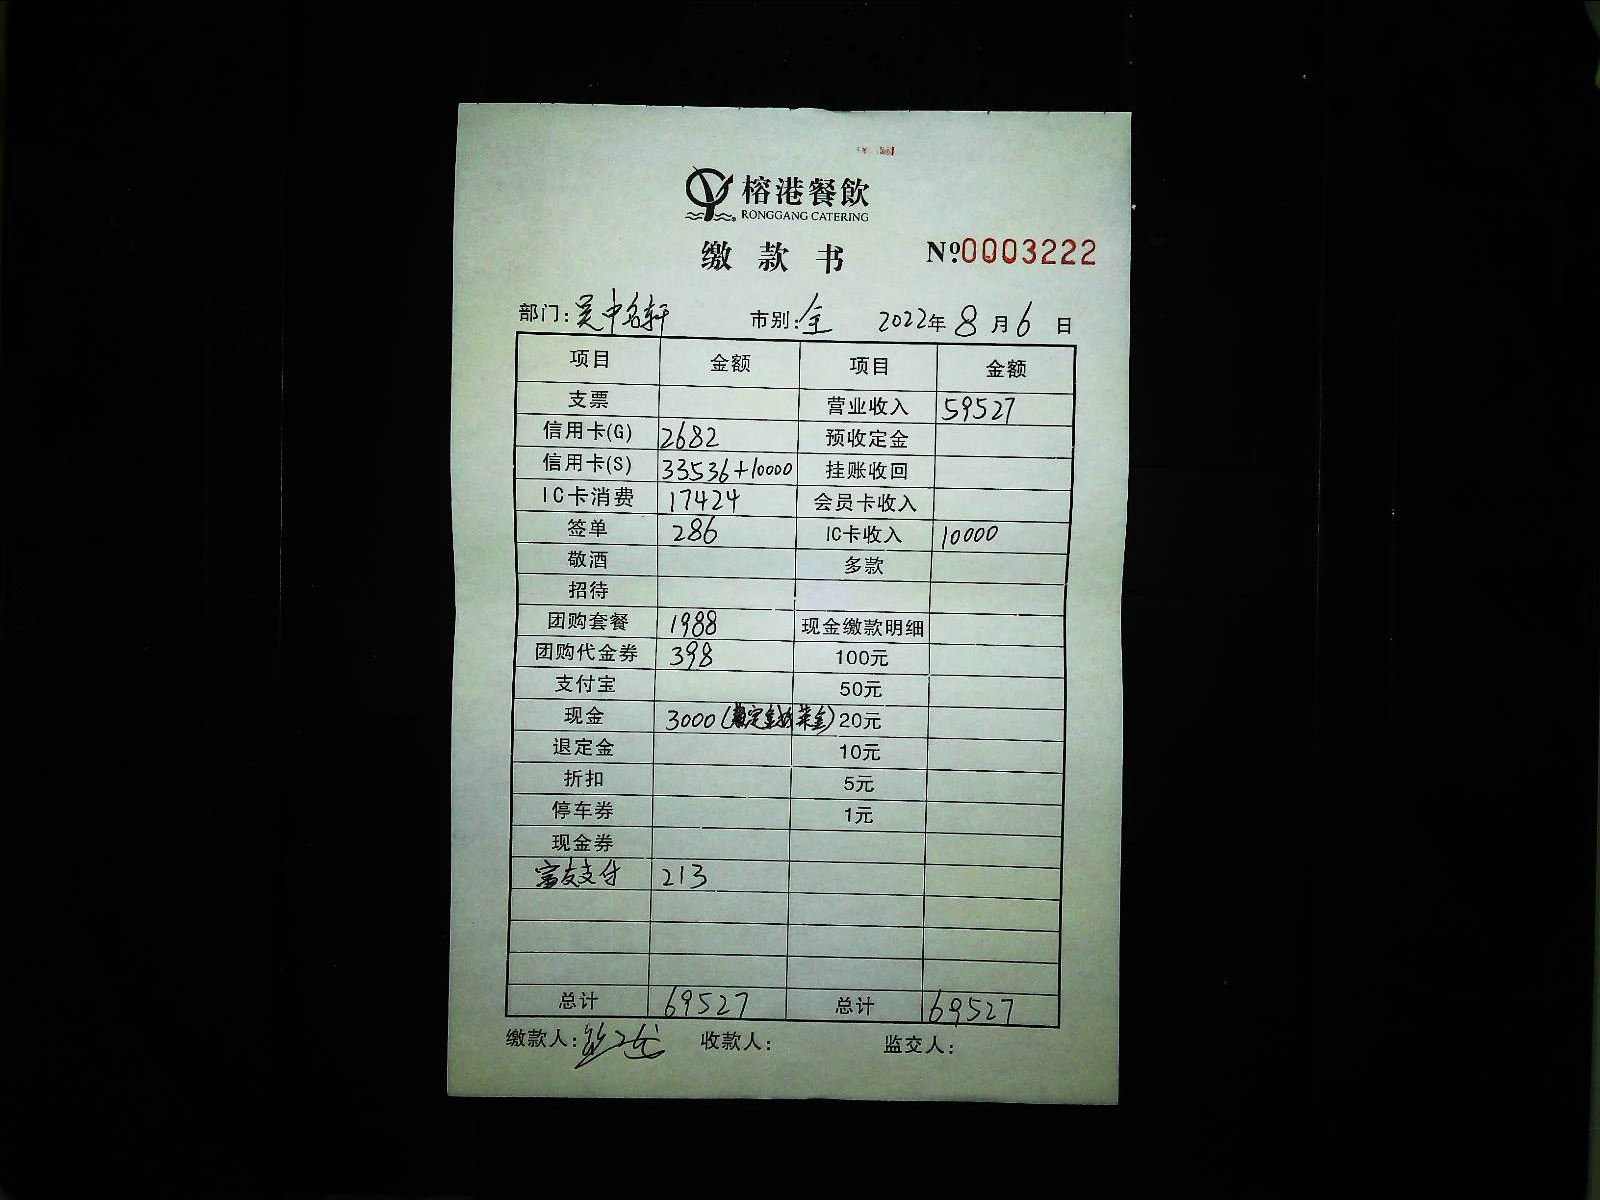 榕港餐飲
RONGGANG CATERING
缴款书 №0003222
部门：吴中名轩 市别：全 2022年8月6日
项目 金额 项目 金额
支票 营业收入 59527
信用卡(G) 2682 预收定金
信用卡(S) 33536+10000 挂账收回
IC卡消费 17424 会员卡收入
签单 286 IC卡收入 10000
敬酒 多款
招待
团购套餐 1988 现金缴款明细
团购代金券 398 100元
支付宝 50元
现金 3000 20元
退定金 10元
折扣 5元
停车券 1元
现金券
富友支付 213
总计 69527 总计 69527
缴款人： 收款人： 监交人：